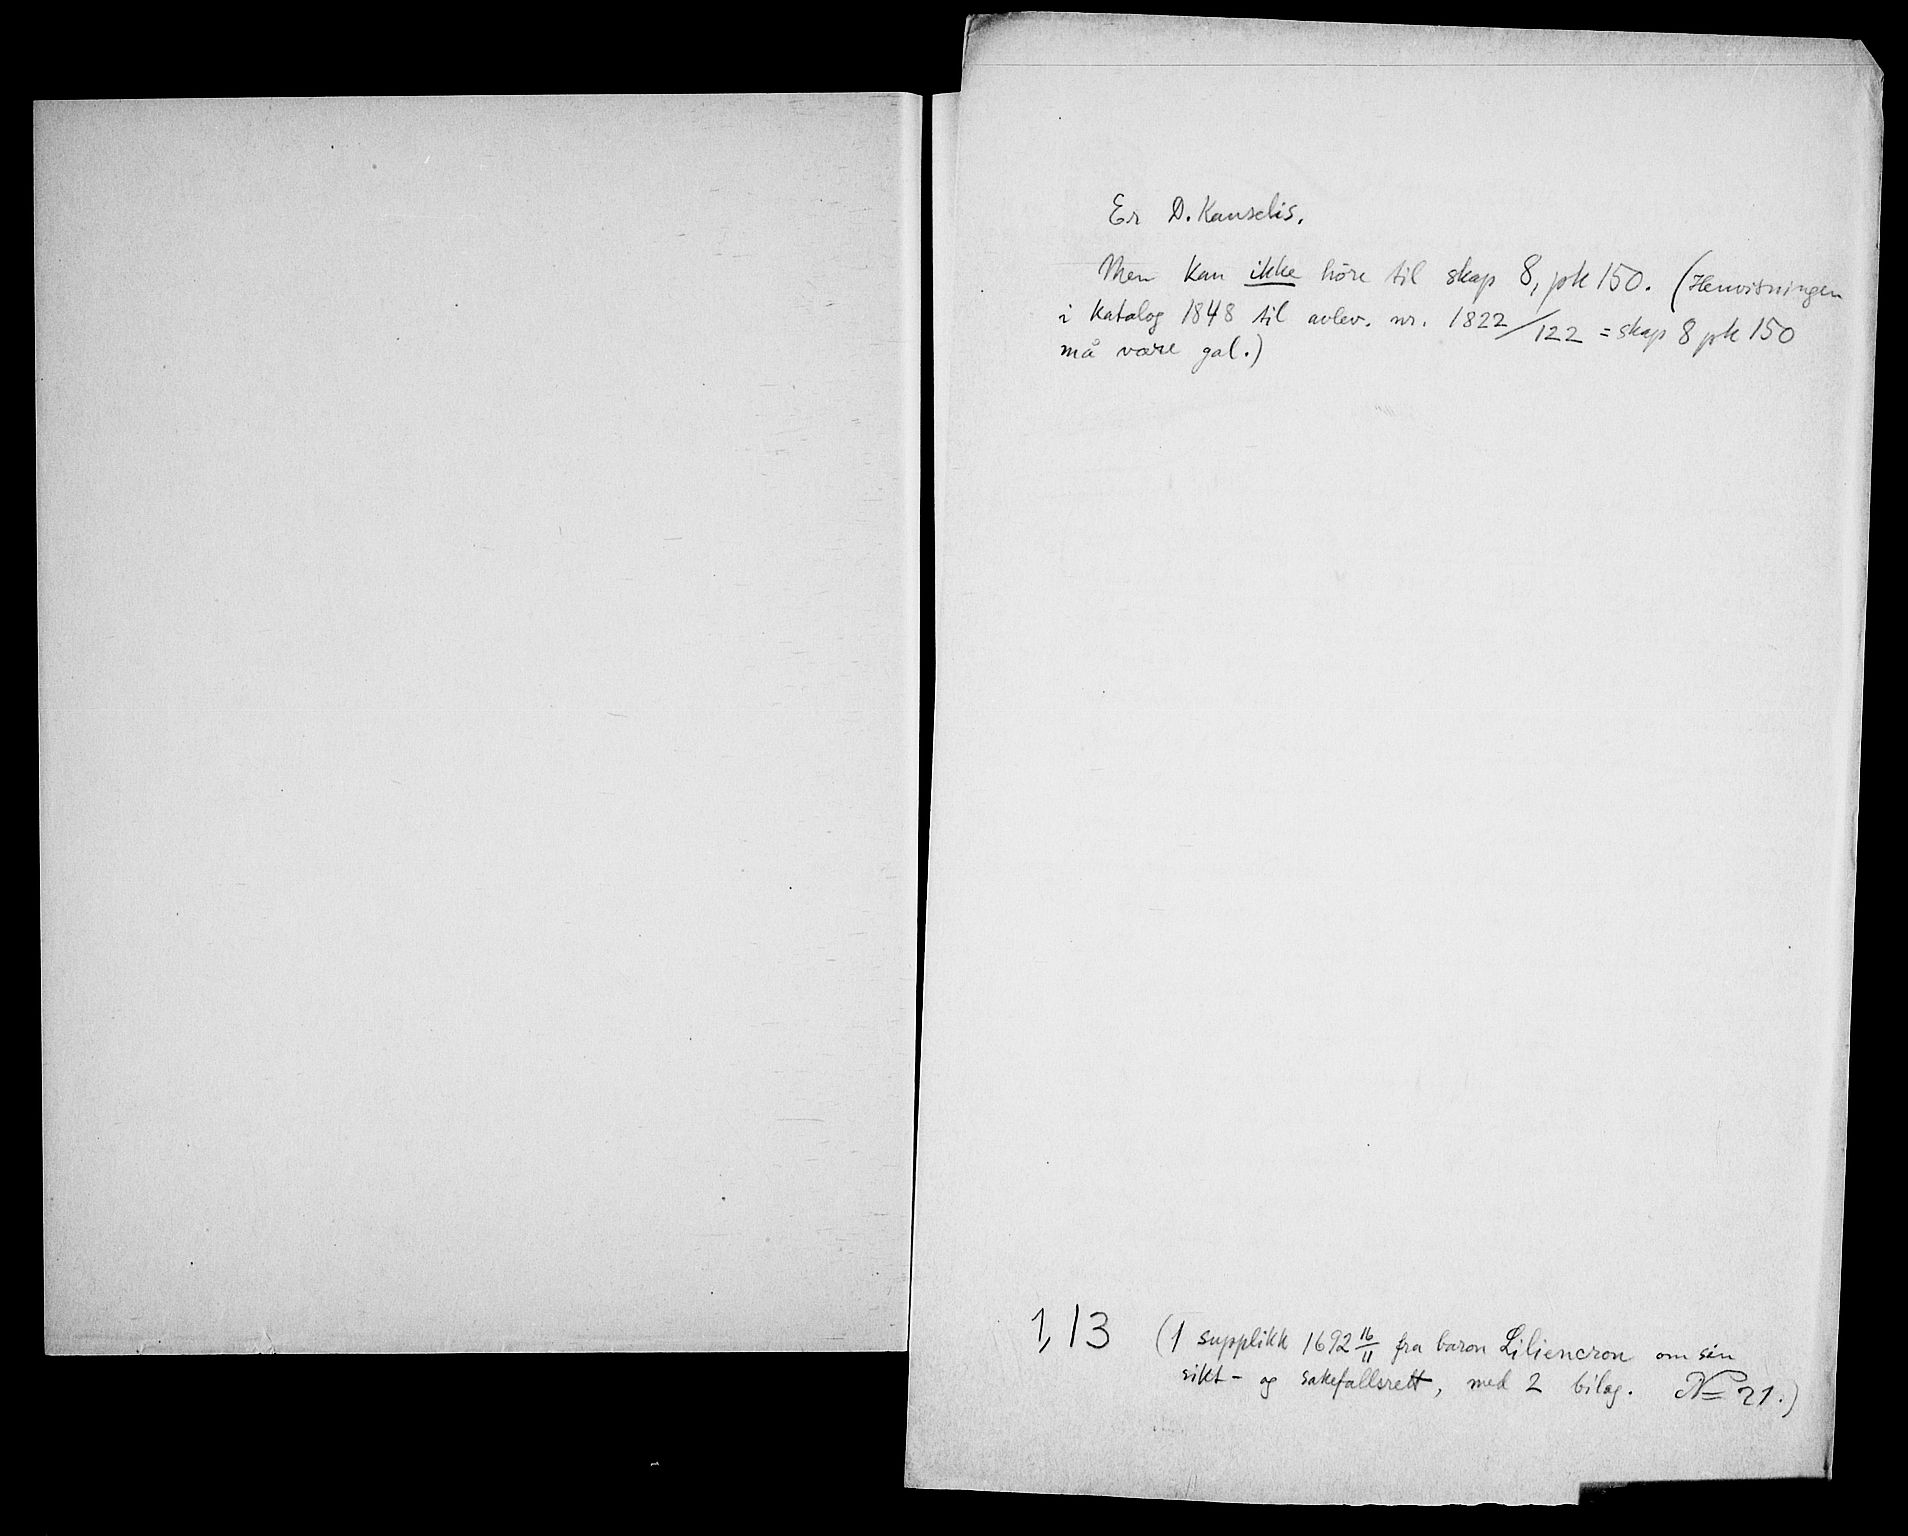 Er D. Kanselis.
Men kan ikke höre til skap 8, pk 150. (Henvisningen
i katalog 1848 til avlev. nr. 1822/122 = skap 8 pk 150
må være gal.)
1,13 (1 supplikk 1692 16/11 fra baron Liliencron om sin
sikt- og sakefallsrett, med 2 bilag. No 21.)